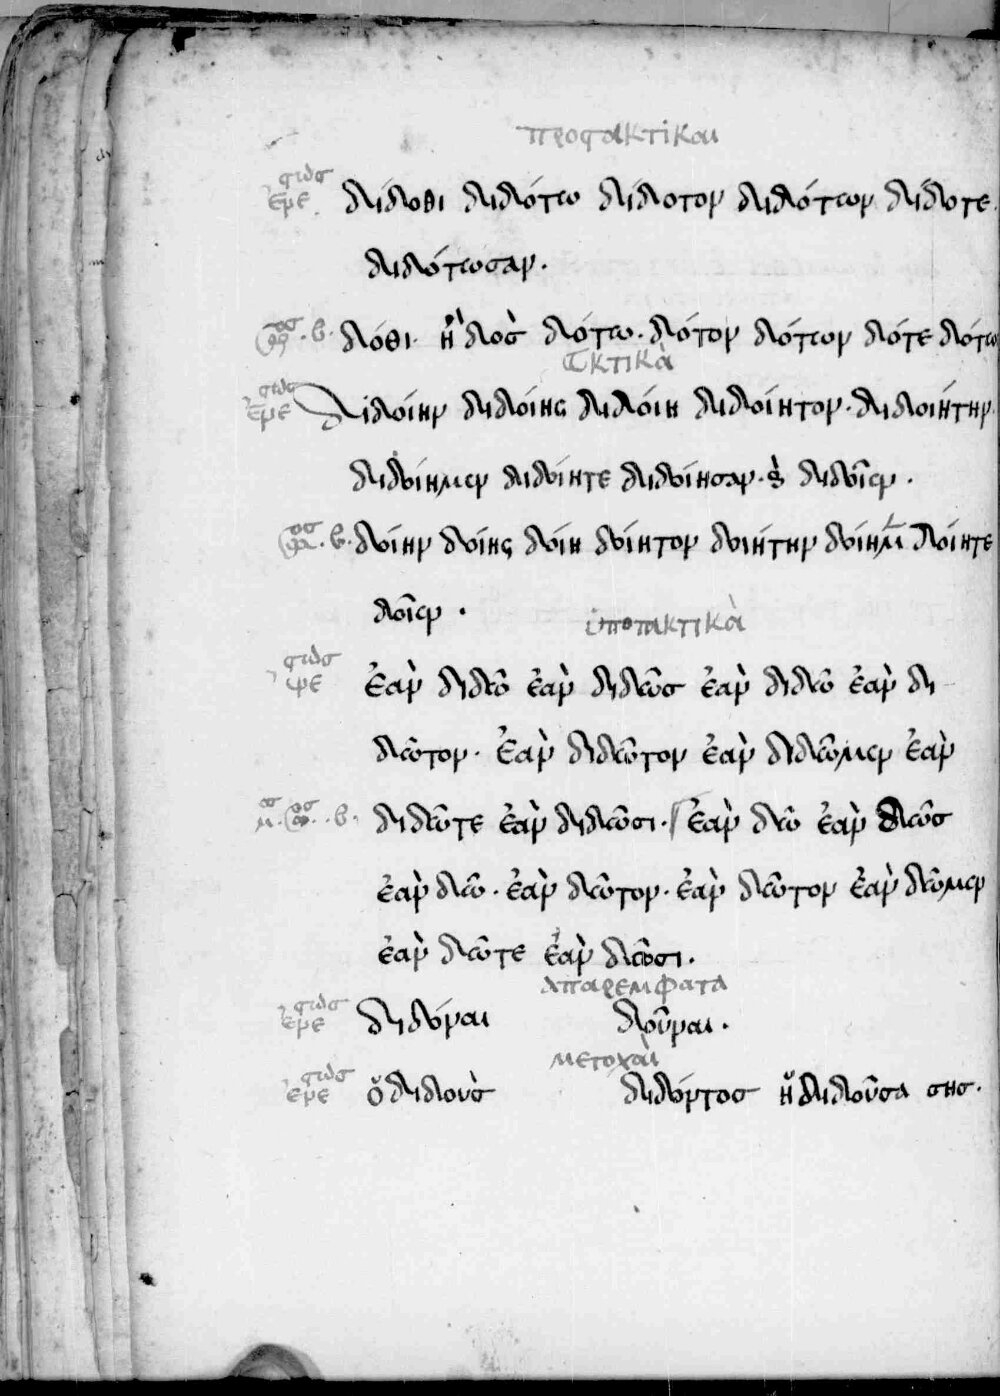 προστακτικαι
ἐνεστως δίδοθι διδότω δίδοτον διδότων δίδοτε
διδότωσαν.
β. δόθι. ἢ δὸς δότω. δότον δότων δότε δότω
εὐκτικὰ
ἐνεστως Διδοίην διδοίης διδοίη διδοίητον. διδοιήτην.
διδοίημεν διδοίητε διδοίησαν. ϗ διδοῖεν.
β. δοίην δοίης δοίη δοίητον δοιήτην δοίημ δοίητε
δοῖεν.
ὑποτακτικὰ
ἐὰν διδῶ ἐὰν διδῶς ἐὰν διδῶ ἐὰν δι
δῶτον. Ἐὰν διδῶτον ἐὰν διδῶμεν ἐὰν
β. διδῶτε ἐὰν διδῶσι. ἐὰν δῶ ἐὰν δῶς
ἐὰν δῶ. ἐὰν δῶτον. ἐὰν δῶτον ἐὰν δῶμεν
ἐὰν δῶτε ἐὰν δῶσι.
απαρεμφατα
ἐνεστὼς διδόναι δοῦναι.
μετοχαὶ
ἐνεστὼς ὁ διδοὺς διδόντος ἡ διδοῦσα σης.